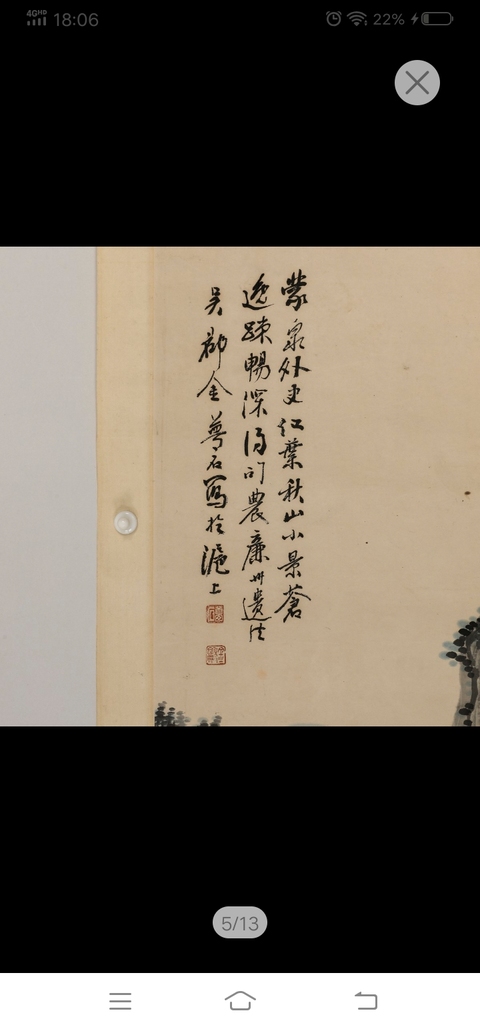 4GHD 18:06 22%
蒙泉外史紅葉秋山小景蒼
逸疎暢深得司農廉州遺法
吴郡金夢石寫於滬上
5/13